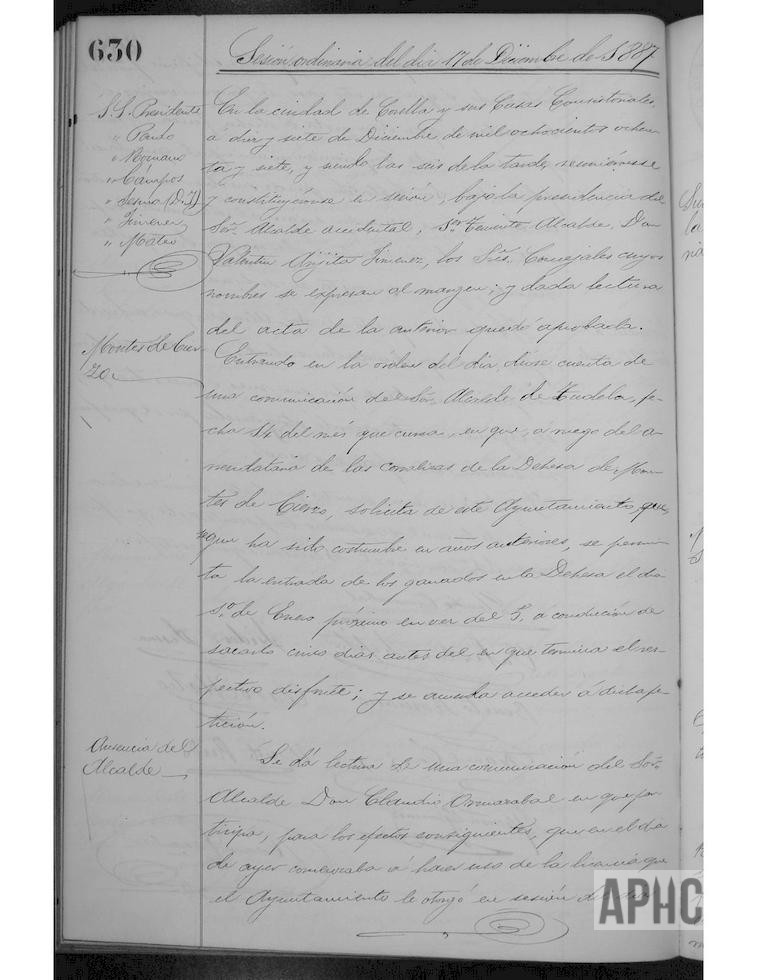 630
Sesión ordinaria del dia 17 de Diciembre de 1887
S.S. Presidente
" Romano
" Campos
" Sesma (D. J)
" Jimenez
" Mateo
En la ciudad de Corella y sus Casas Consistoriales,
á diez y siete de Diciembre de mil ochocientos ochen-
ta y siete, y siendo las seis de la tarde, reuniéronse
y constituyéronse en sesión, bajo la presidencia del
Señor Alcalde accidental, Sor. Teniente Alcalde, Don
Valentin Jimenez, los Sres. Concejales cuyos
nombres se expresan al margen; y dada lectura
del acta de la anterior quedó aprobada.
Montes de Cier-
zo
Entrando en la orden del dia, dióse cuenta de
una comunicación del Señor Alcalde de Tudela, fe-
cha 14 del mes que cursa, en que, á ruego del a-
rrendatario de las corralizas de la Dehesa de Mon-
tes de Cierzo, solicita de este Ayuntamiento, que,
segun ha sido costumbre en años anteriores, se permi-
ta la entrada de los ganados en la Dehesa el dia
1º de Enero próximo en vez del 5, á condición de
sacarlo cinco dias antes del en que termina el res-
pectivo disfrute; y se acuerda acceder á dicha pe-
tición.
Ausencia del
Alcalde
Se dá lectura de una comunicación del Señor
Alcalde Don Claudio en que par-
ticipa, para los efectos consiguientes, que en el dia
de ayer comenzaba á hacer uso de la licencia que
el Ayuntamiento le otorgó en sesión
APHC